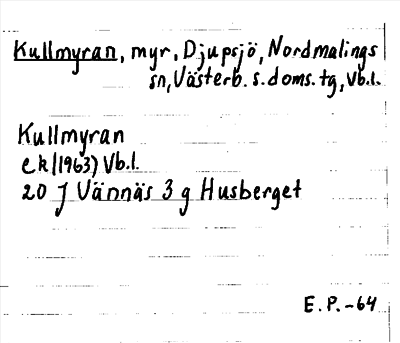 Kullmyran, myr, Djupsjö, Nordmalings
sn, Västerb. s. doms. tg, Vb.l.
Kullmyran
ek (1963) Vb.l.
20 J Vännäs 3 g Husberget
E. P. -64